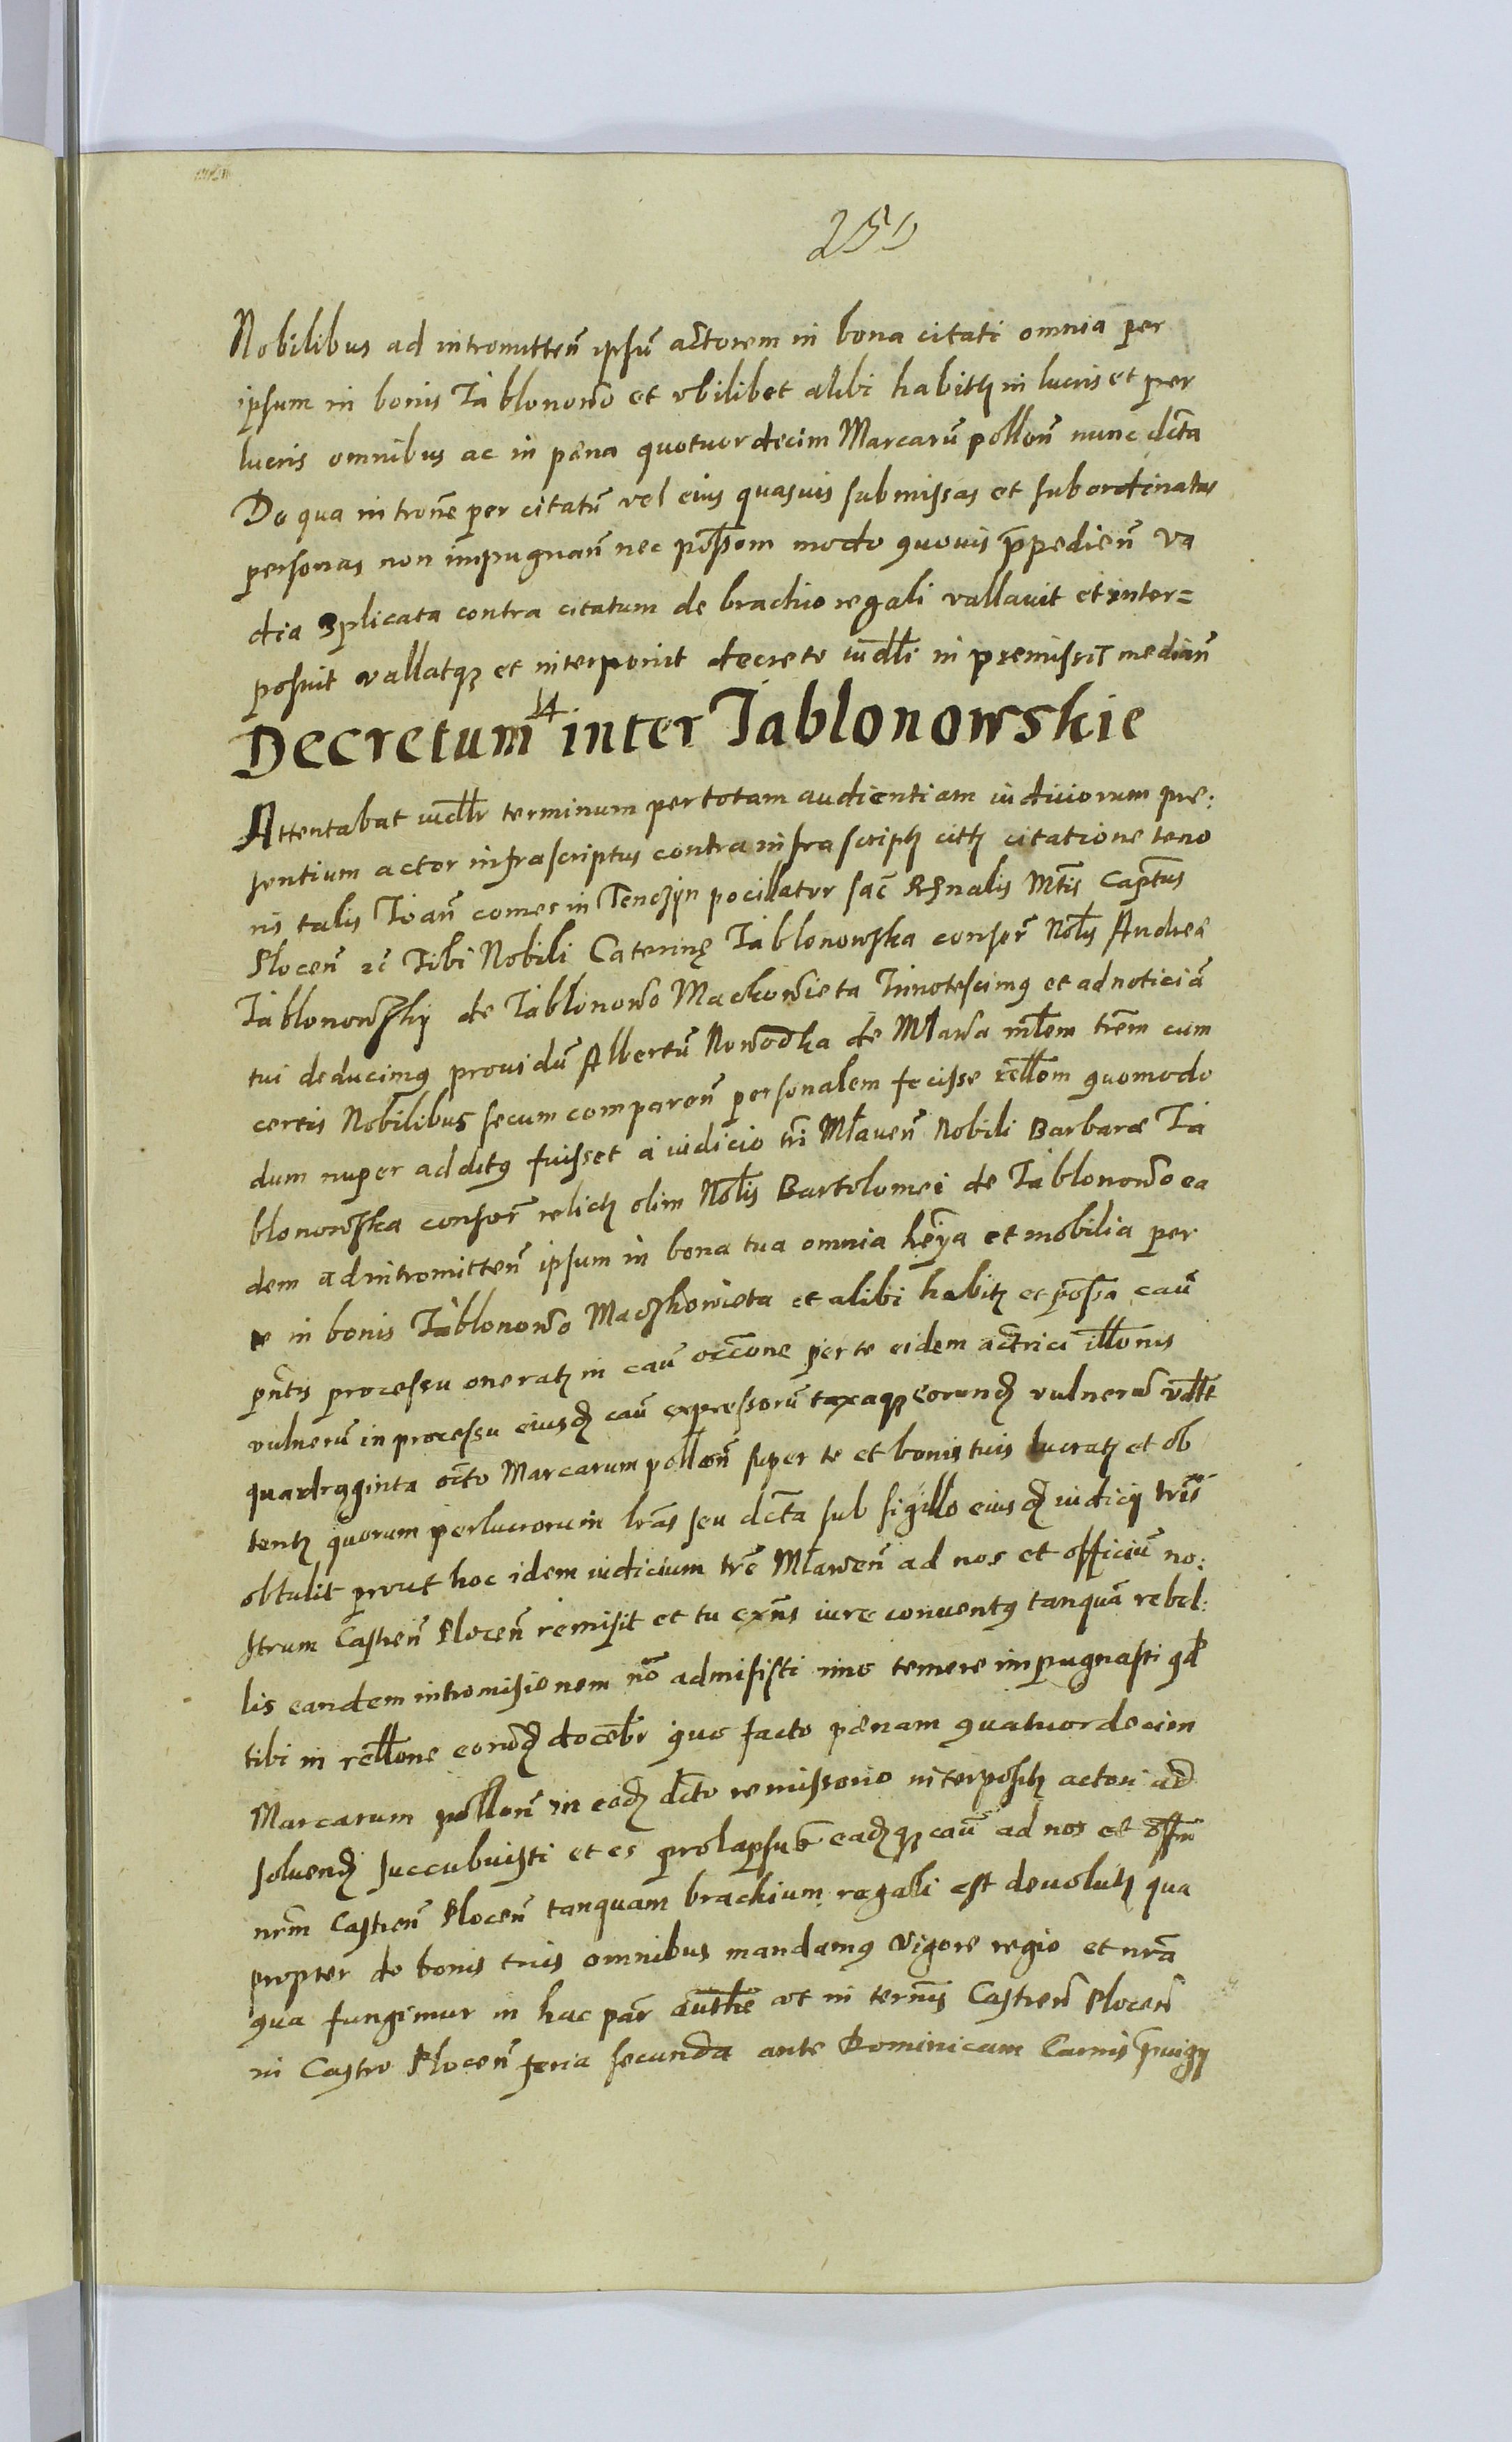 259
Nobilibus ad intromitten̄ ipsū actorem in bona citati omnia per
ipsum in bonis Jablonowo et vbilibet alibi habitꝫ in lucris et per
lucris omnibus ac in pæna quotuordecim Marcarū pollon̄ nunc dcta
De qua intrōne per citatū vel eius quasuis submissas et subordinatas
personas non impugnan̄ nec possom modo quouis p̄pedien̄ va
dia applicata contra citatum de brachio regali vallauit et inter=
posuit vallatqꝫ et interponit decreto iudli in premissis median̄
14
Decretum inter Jablonowskie
Attentabat iudlr terminum per totam audientiam iudiciorum pre:
sentium actor infrascriptus contra infrascriptꝫ citꝫ citatione teno
ris talis Joan̄ comes in Tenczyn pocillator sac̄ Rgnalis Mtis Captus
Plocen̄ ꝛc̄ Tibi Nobili Caterinę Jablonowska consor̄ Nobis Andreæ
Jablonowsky de Jablonowo Mackowieta Innotescimꝰ et ad noticiā
tui deducimꝰ prouidū Albertū Nowodka de Mlawa mlem trem cum
certis Nobilibus secum comparen̄ personalem fecisse rellom quomodo
dum nuper additꝰ fuisset a iudicio tri Mlauen̄ Nobili Barbaræ Ja
blonowska consor̄ relictꝫ olim Nobis Bartolomei de Jablonowo ea
dem ad intromitten̄ ipsum in bona tua omnia heīya et mobilia per
te in bonis Jablonowo Maczkowieta et alibi habitꝫ et possa caū
pn̄tis processu oneratꝫ in caū occōne per te eidem actrici illonis
vulnerū in processu eiusdꝫ caū expressorū taxaqꝫ eorundꝫ vulnerū vdlt
quadraginta octo Marcarum pollon̄ super te et bonis tuis lucratꝫ et ob
tentꝫ quorum perlucrorum lrās seu dcta sub sigillo eiusdꝫ iudicij tris
obtulit prout hoc idem iudicium trē Mlawen̄ ad nos et officiū no:
strum Castren̄ Plocen̄ remisit et tu exn̄s iure conuentꝰ tanquā rebel:
lis eandem intromisionem nō admisisti imo temere impugnasti qd
tibi in rellone eorudꝫ docebr quo facto pænam quatuordecim
Marcarum pollon̄ in eodꝫ dcto remissorio interpositꝫ actori ad
soluendꝫ succubuisti et es prolapsus eadꝫqꝫ caū ad nos et offm
nrm Castren̄ Plocen̄ tanquam brachium regali est deuolutꝫ qua
propter de bonis tuis omnibus mandamꝰ vigore regio et nrā
qua fungimur in hac par̄ authe vt in termis Castren̄ Plocen̄
in Castro Plocen̄ feria secunda ante Dominicam Carnis p̄uigij